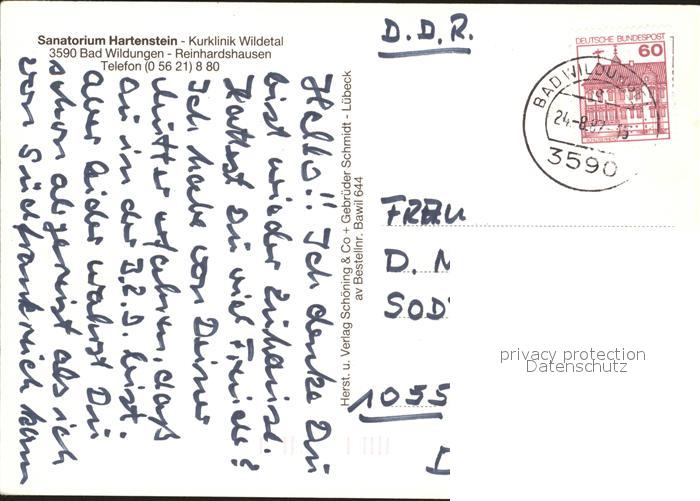 Sanatorium Hartenstein - Kurklinik Wildetal
3590 Bad Wildungen - Reinhardshausen
Telefon (0 56 21) 8 80
Hello!! Ich denke Du
bist wieder zuhause.
Hattest Du viel Freude?
Ich habe von Deiner
Mutter erfahren, daß
Du in der B.R.D. bist.
aber leider warst Du
schon abgereist als ich
von Südfrankreich kam
Herst. u. Verlag Schöning & Co + Gebrüder Schmidt - Lübeck
av Bestellnr. Bawil 644
D.D.R.
DEUTSCHE BUNDESPOST
60
BAD WILDUNGEN
24.-8.87.-15
3590
FRAU
D. M
SOD
1055
privacy protection
Datenschutz